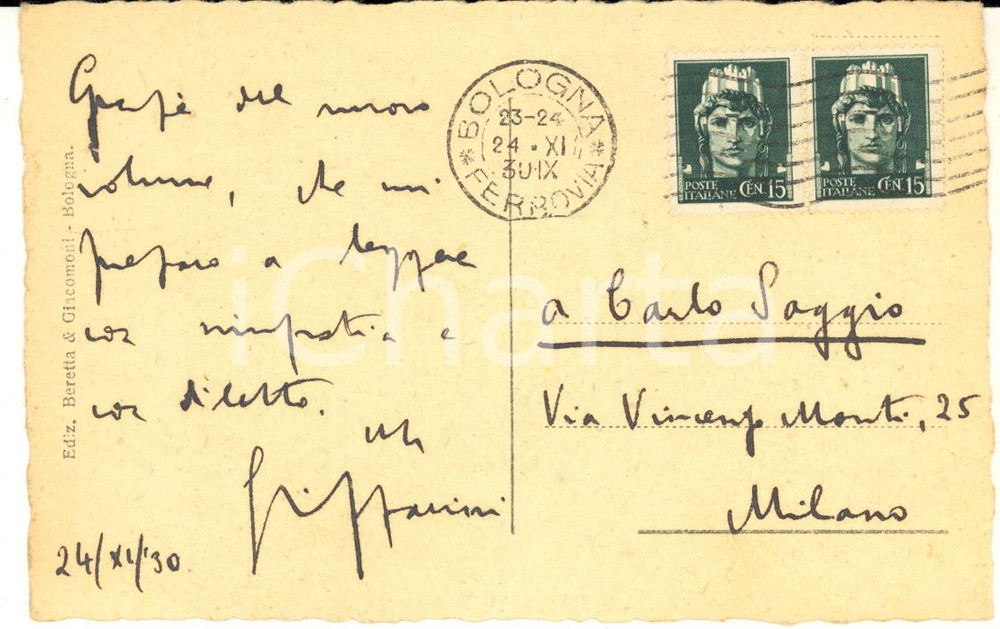 Grazie del nuovo
volume, che mi
preparo a leggere
con simpatia e
con diletto.
24/XI/'30
Ediz. Beretta & Giacomoni - Bologna.
BOLOGNA
23-24
24 • XI
30 IX
* FERROVIA *
POSTE ITALIANE CEN 15
POSTE ITALIANE CEN 15
a Carlo Saggio
Via Vincenzo Monti, 25
Milano
iCharta